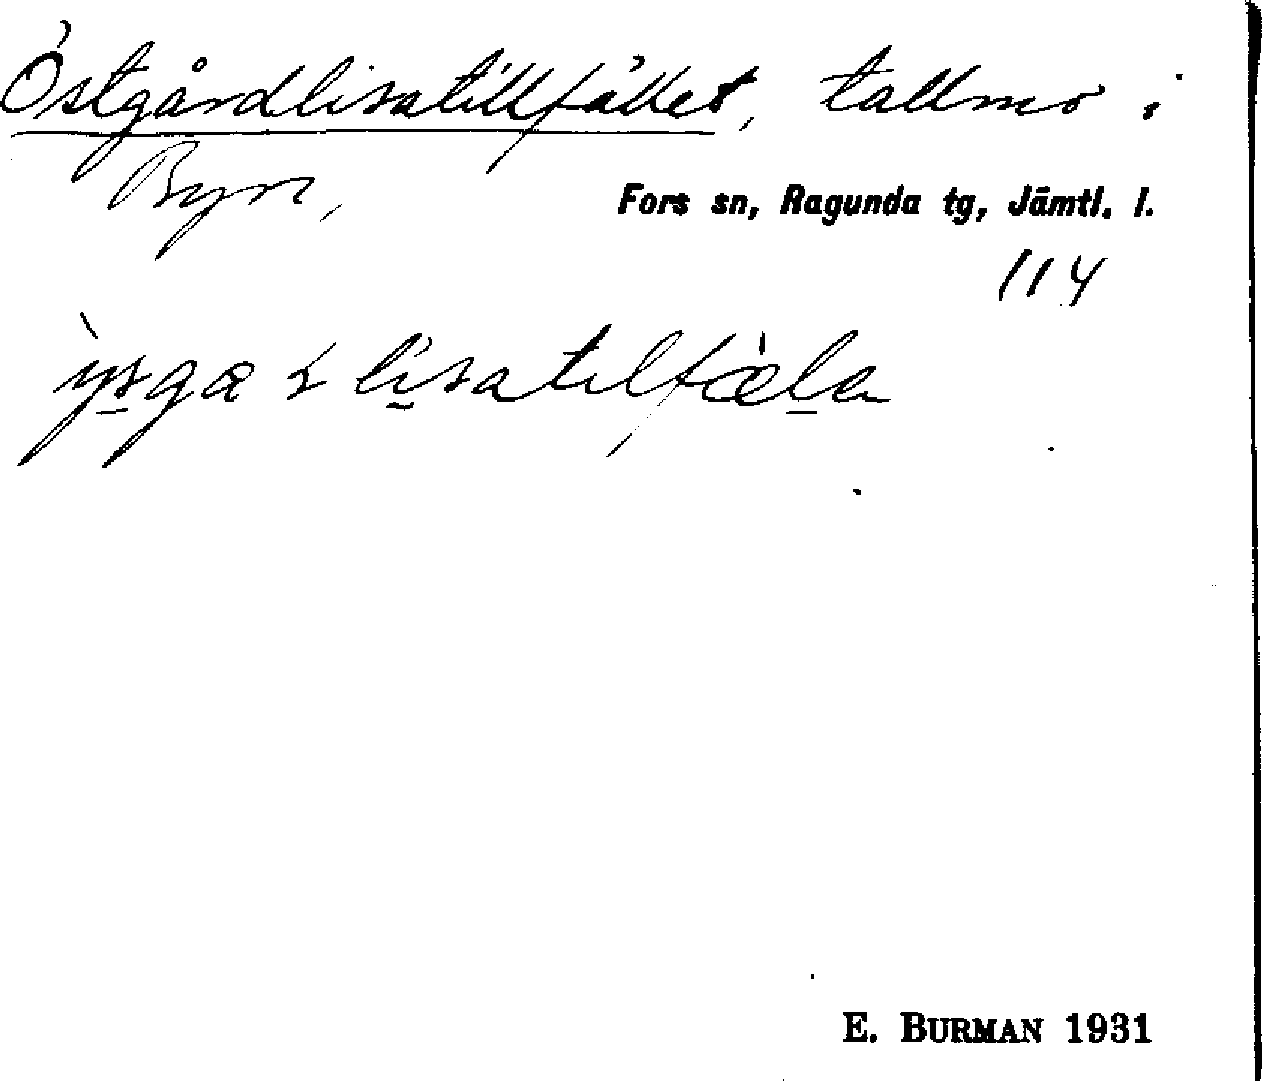 Östgårdlisatillfället, tallmo i
Byn,
Fors sn, Ragunda tg, Jämtl. l.
114
E. BURMAN 1931